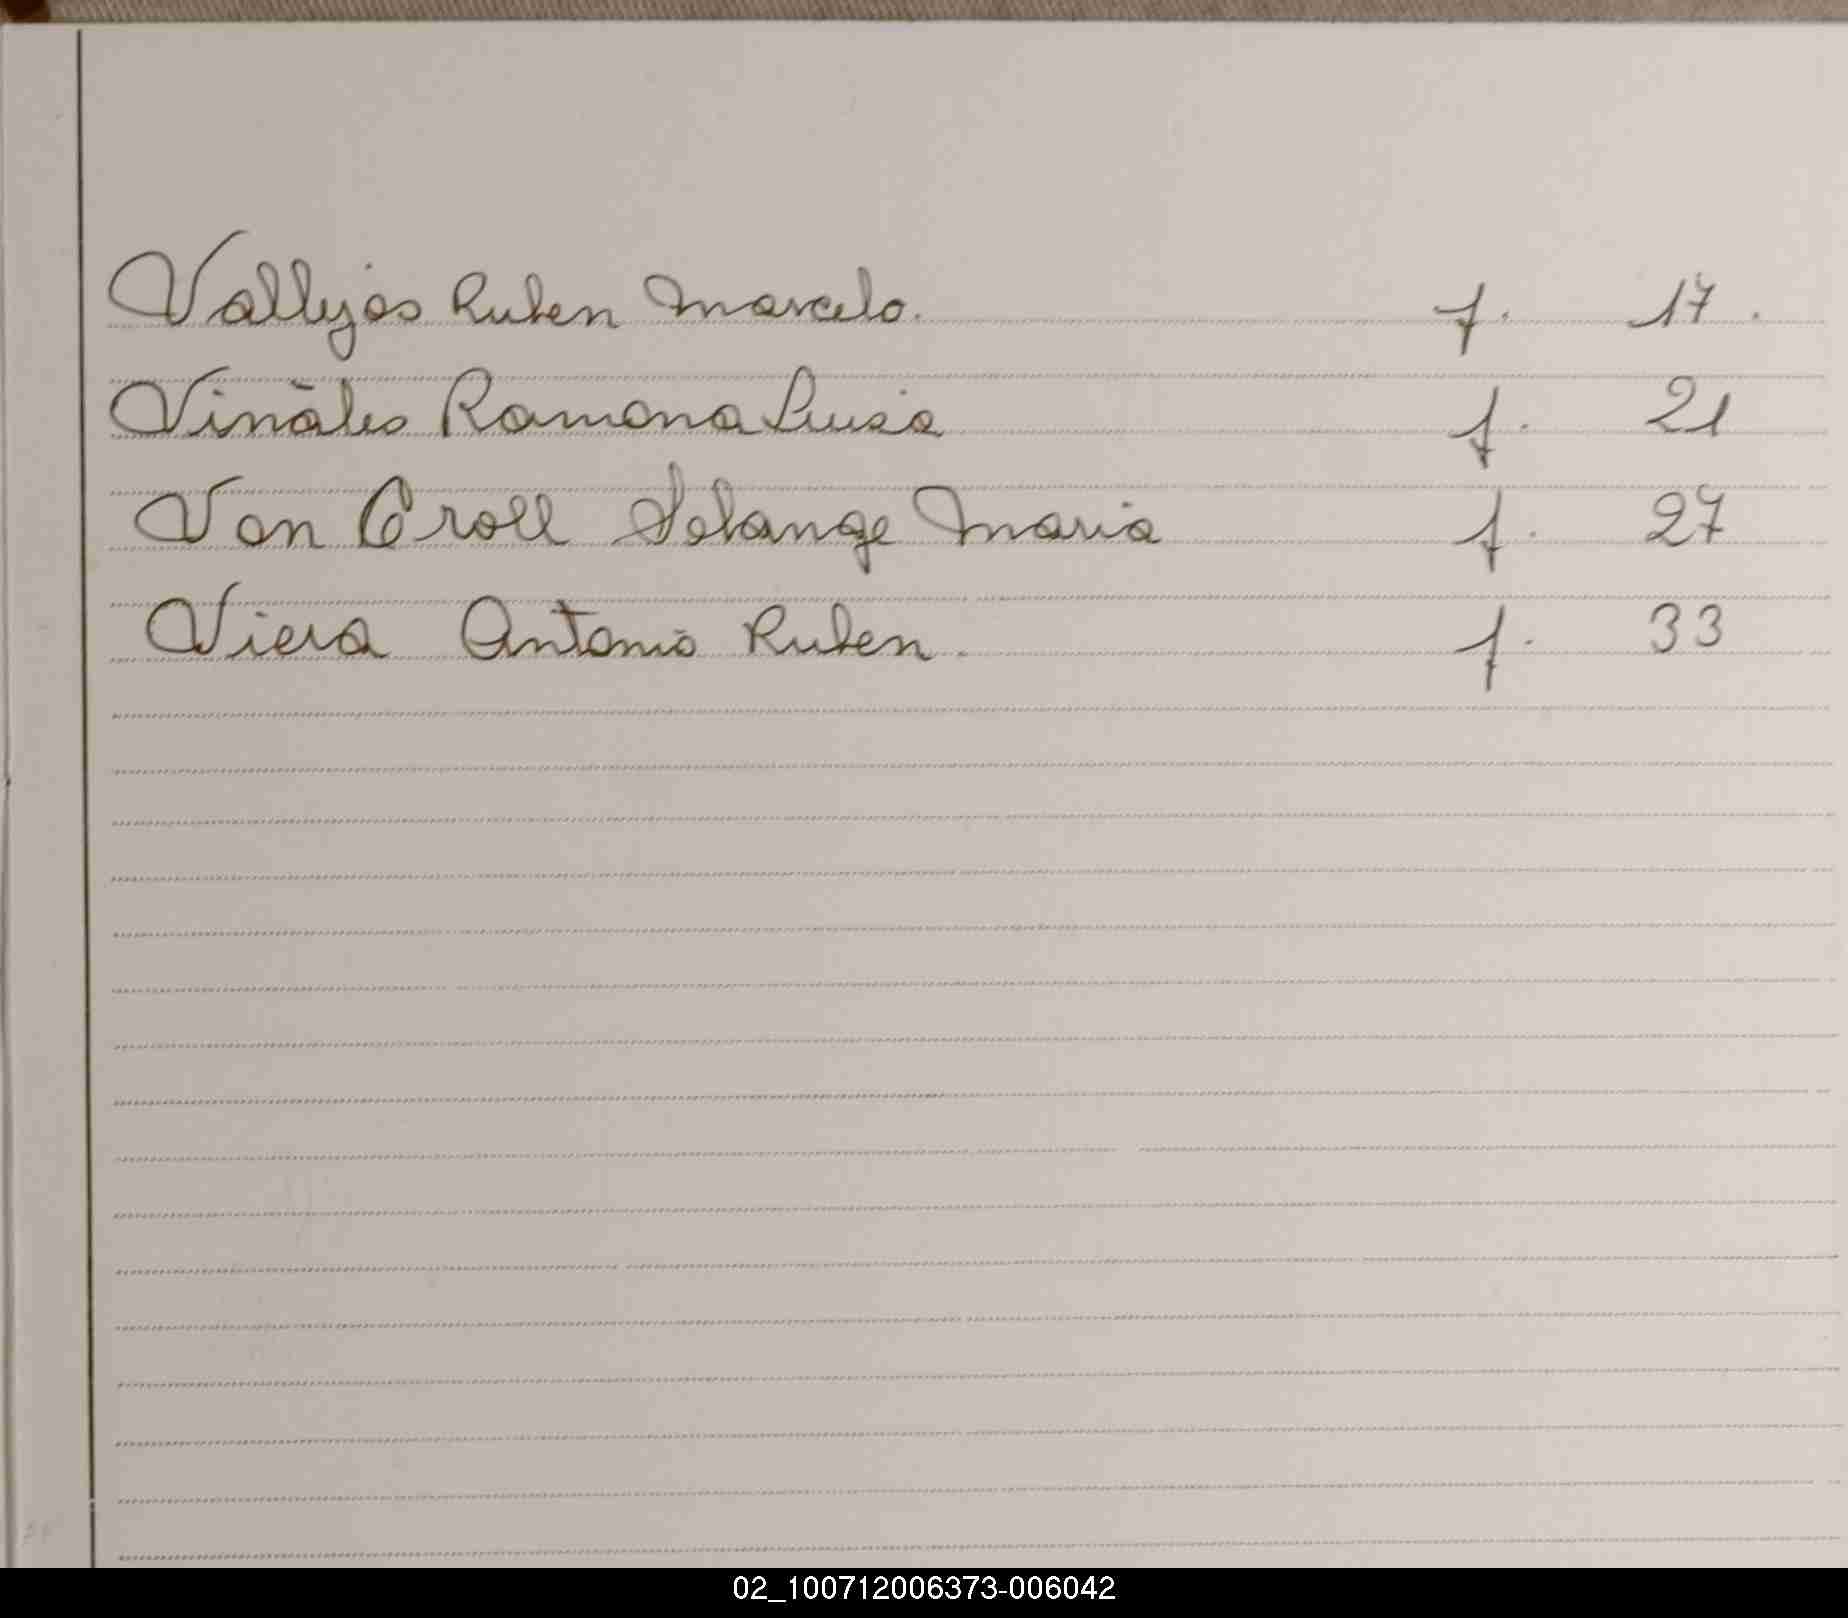 Vallejos Ruben Marcelo. f. 17.
Viñales Ramona Luisa f. 21
Von Croll Solange Maria f. 27
Viera Antonio Ruben. f. 33
02_100712006373-006042